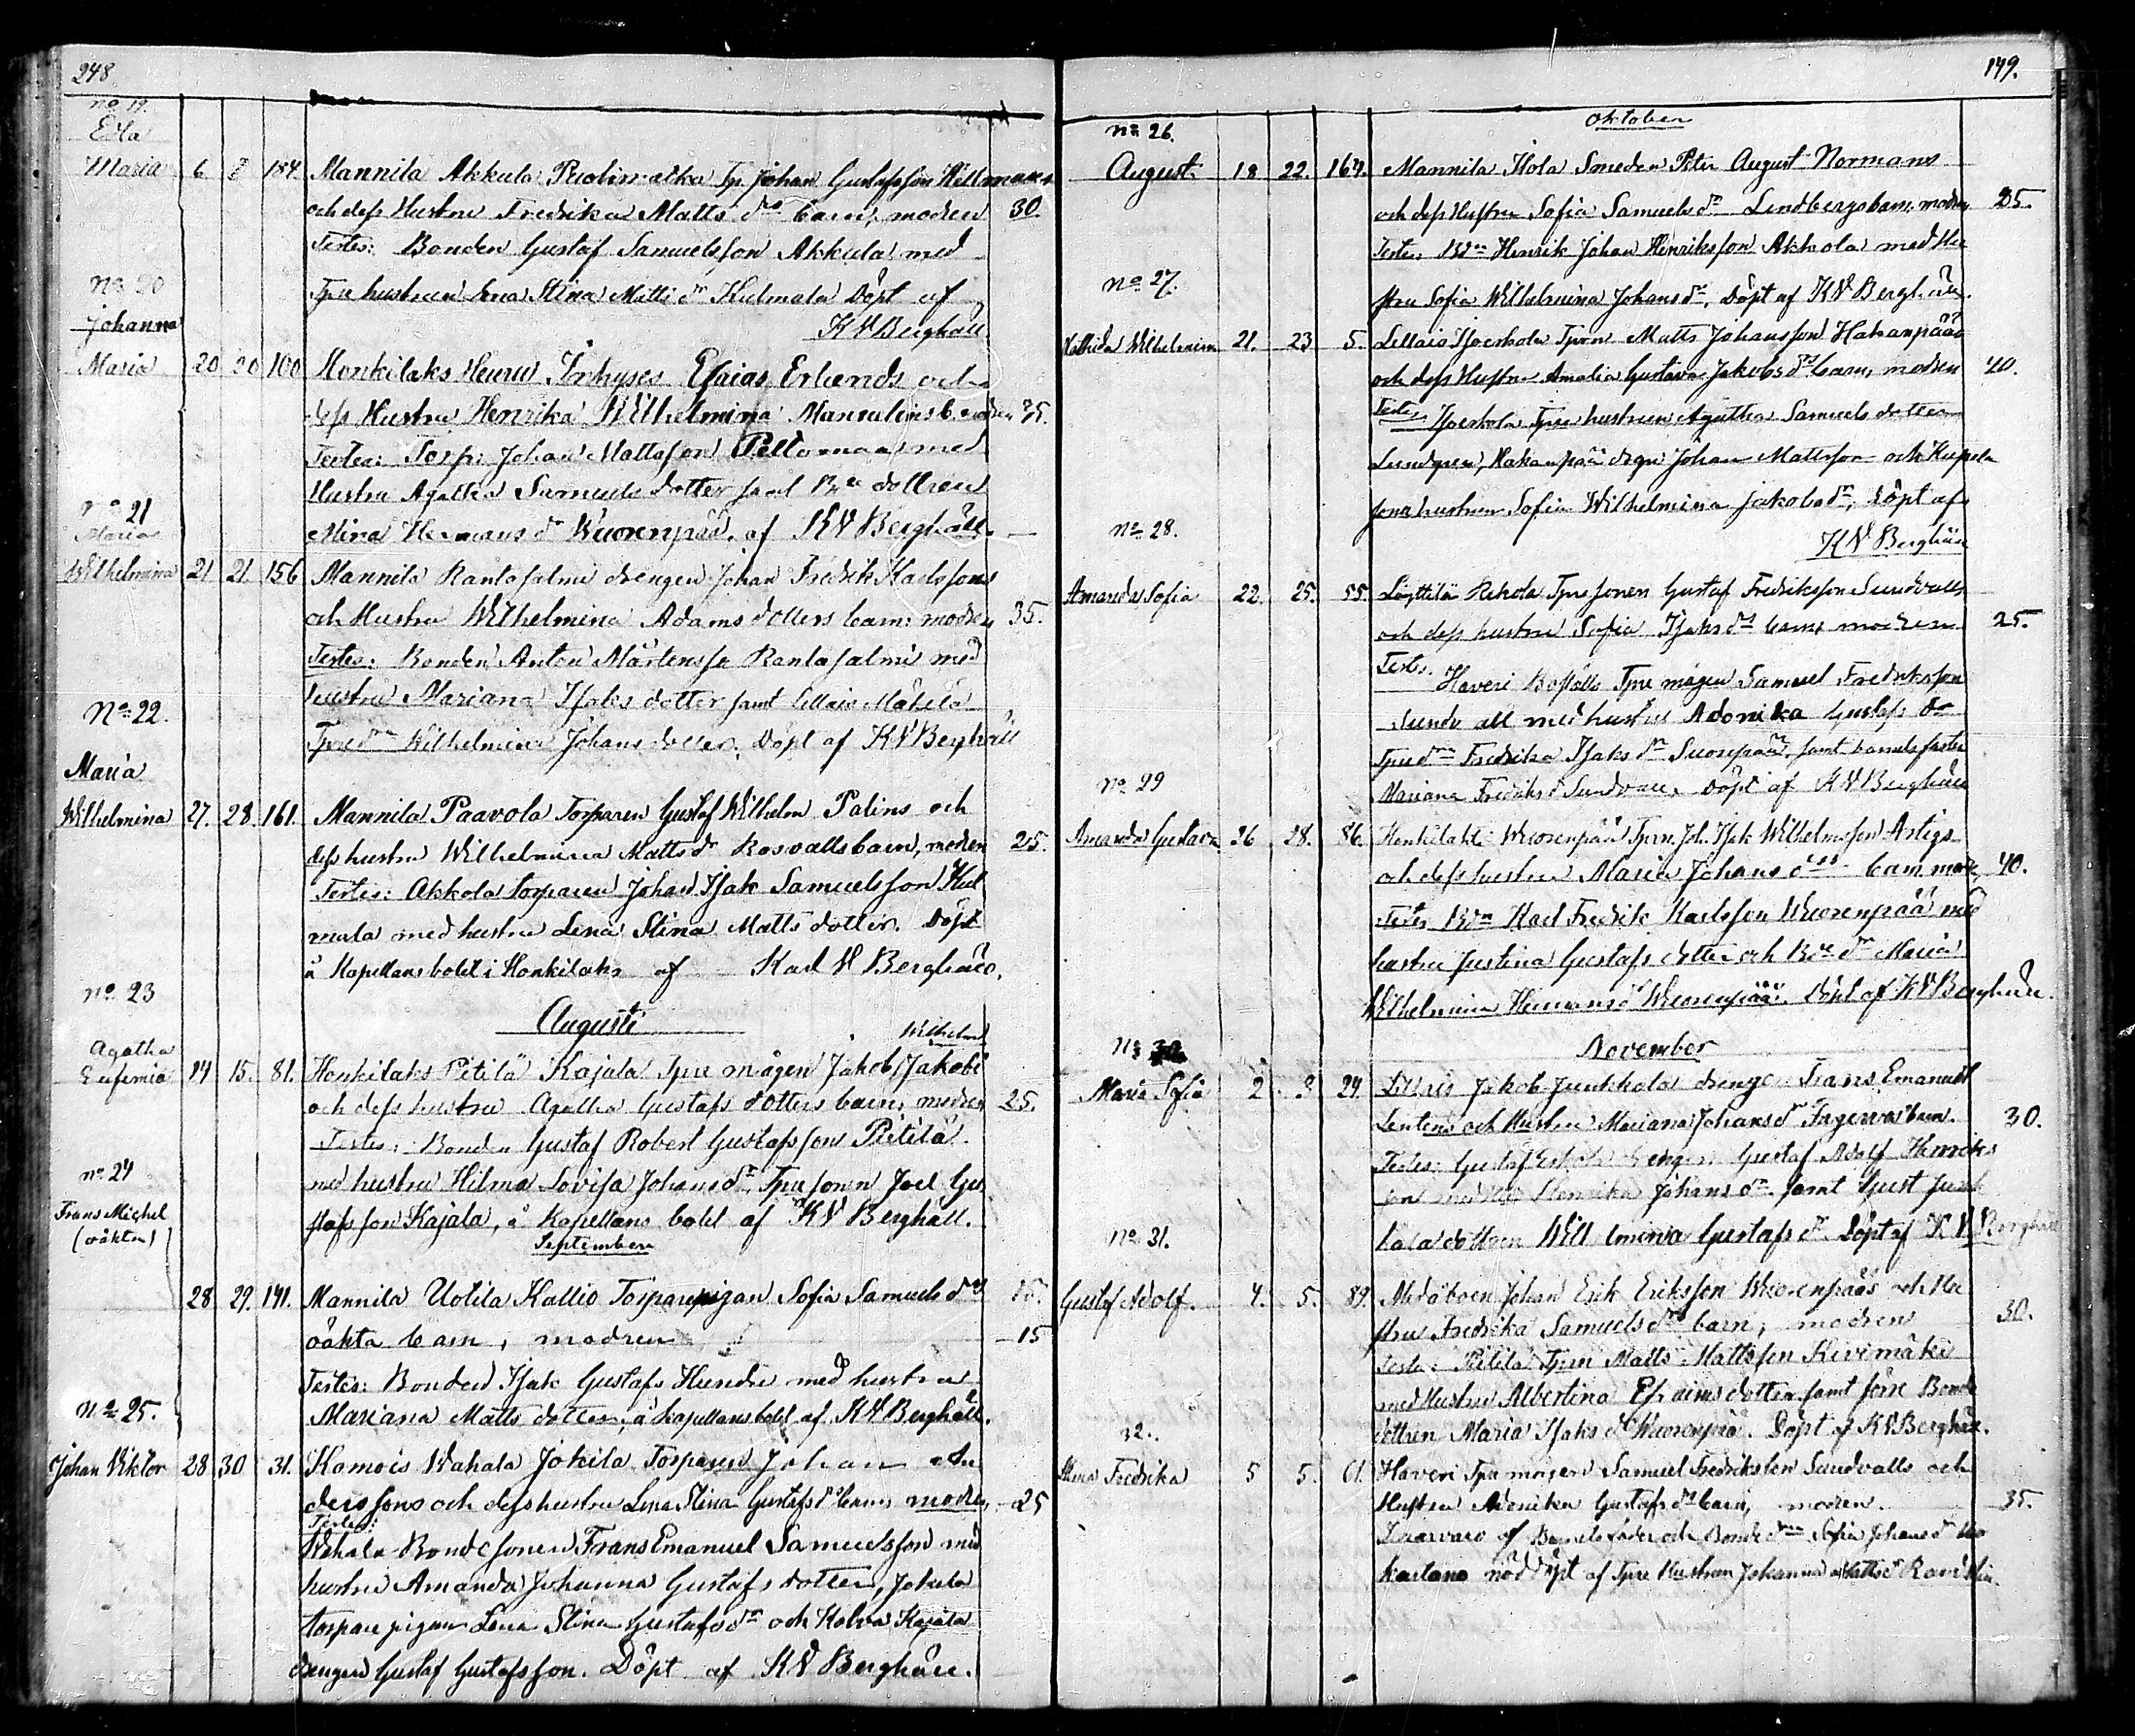 248
No 19.
Edla
Maria 6 8 184. Mannila Akkula Puolimatka Tp. Johan Gustafsson Hellmans
och dess Hustru Fredrika Matts drs barn, modren 30.
Testes: Bonden Gustaf Samuelsson Akkula med
No 20
Tpre hustrun Lena Stina Matts dr Kulmala Döpt af
Johanna
K W Berghäll.
Maria 20 20 100 Honkilaks Esaias Erlunds och
dess Hustru Henrika Wilhelmina b. modren 35.
Testes: Torp: Johan Mattsson med
Hustru Agatha Samuels dotter samt dottren
No 21
Mina Hermans dr Wuorenpää, af K W Berghäll.
Maria
Wilhelmina 21 21 156 Mannila Rantasalmi drengen Johan Fredrik Karlssons
och Hustru Wilhelmina Adams dotters barn: modren 35.
Testes: Bonden Anton Mårtensso Rantasalmi med
hustru Mariana Isaks dotter samt Lellais Mäkelä
No 22.
Wilhelmina Johans dotter. Döpt af K W Berghäll
Maria
Wilhelmina 27. 28. 161. Mannila Paavola Torparen Gustaf Wilhelm Palins och
dess hustru Wilhelmina Matts dr Rosvalls barn, modren 25.
Testes: Akkola torparen Johan Isak Samuelsson Kul
mala med hustru Lena Stina Matts dotter. Döpt
å Kapellans bolet i Honkilaks af Karl W Berghäll.
No 23
Augusti
Wilhelm
Agatha
Eufemia 14 15. 81. Honkilaks Pietilä Kajala Tpre mågen Jakob Jakobs
och dess hustru Agatha Gustafs dotters barn, modren 25.
Testes: Bonden Gustaf Robert Gustafsson Pietilä
No 24
med hustru Hilma Lovisa Johans dr Tpre sonen Joel Gu
Frans Michel
stafsson Kajala, å Kapellans bolet af K W Berghäll.
(oäkta)
September
28 29. 141. Mannila Uotila Kallio Torparepigan Sofia Samuels drs 15.
oäkta barn, modren 15
Testes: Bonden Isak Gustafs Hundi med hustru
No 25.
Mariana Matts dotter, å Kapellans bolet af K W Berghäll.
Johan Viktor 28 30 31. Komois Wahala Jokila Torparen Johan An
derssons och dess hustru Lena Stina Gustafs drs barn, modren 25
Testes:
Wahala Bondesonen Frans Emanuel Samuelsson med
hustru Amanda Johanna Gustafs dotter, Jokila
torpare pigan Lena Stina Gustafsdr och Kolva Kajala
drengen Gustaf Gustafsson. Döpt af K W Berghäll.
149.
Oktober
No 26.
August 18 22. 164. Mannila Hola Smeden Peter August Normans
och dess Hustru Sofia Samuels dr Lindbergs barn, modren 25.
Testes Bdn Henrik Johan Henriksson Akkola med Hu
No 27.
stru Sofia Wilhelmina Johans dr, Döpt af K W Berghäll.
Wilhelmina 21. 23 5. Lellais Tprn Matts Johansson Hakanpääs
och dess Hustru Amalia Gustava Jakobs drs barn, modren 40.
Testes Tpre hustrun Agatha Samuels dotter
Lundgren, Hakanpää dräng Johan Mattsson och
hustrun Sofia Wilhelmina Jakobs dr, Döpt af
No 28.
K W Berghäll
Amanda Sofia 22. 25. 55. Löyttilä Rekola Tpre sonen Gustaf Fredriksson Sundvalls
och dess hustru Sofia Isaks drs barn, modren 25.
Testes. Haveri Boställs Tpre mågen Samuel Fredriksson
Sundvall med hustru Adonika Gustafs dr
Tpre drn Fredrika Isaks dr Suonpää, samt barnets faster
No 29
Mariana Fredriks dr Sundvall. Döpt af K W Berghäll
Amanda Gustava 26 28. 86. Honkilahti Wuorenpää Tprn. Joh. Isak Wilhelmsson Artigs
och dess hustru Maria Johans drs barn, modr 40.
Testes Bdn Karl Fredrik Karlsson Wuorenpää med
hustru Justina Gustafs dotter och Bde dr Maria
Wilhelmina Hermans dr Wuorenpää. Döpt af K W Berghäll.
No 30
November
Maria Sofia 2. 3. 24. Jakob Junkkala drengen Frans Emanuel
Lentens och Hustru Mariana Johans dr Fagerva barn. 30.
Testes: Gustaf Eskola drengen Gustaf Adolf Henriks
son med Henrika Johans dr. samt Gust Junk
No 31.
kala dottren Wilhelmina Gustafs dr Döpt af K W Berghäll
Gustaf Adolf. 4. 5. 89. Johan Erik Eriksson Wuorenpääs och Hu
stru Fredrika Samuels drs barn, modren 30.
Testes: Pietilä Tprn Matts Mattsson Kivimäki
med Hustru Albertina Efraims dotter samt förre Bonde
32.
dottren Maria Isaks dr Wuorenpää. Döpt af K W Berghäll.
Fredrika 5 5. 61. Haveri Tpre mågen Samuel Fredriksson Sundvalls och
Hustru Adonika Gustafs drs barn, modren. 35.
I närvaro af Barnets fader och Bonde drn Sofia Johans dr
nöd döpt af Tpre Hustrun Johanna Matts dr